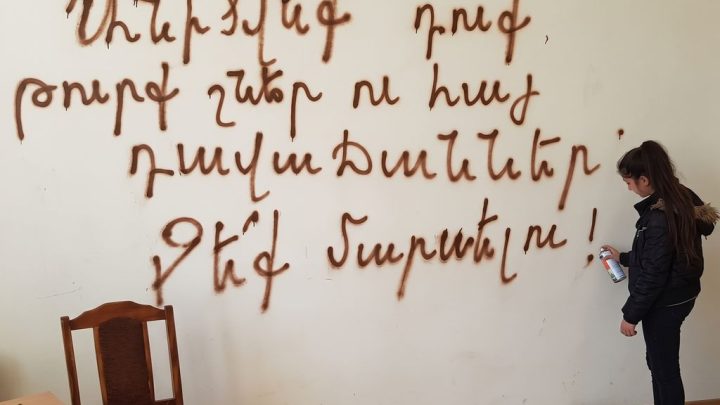 դուք,
թուրք շներ ու հայ
դավաճաններ՝
Չե՛ք մարսելու!